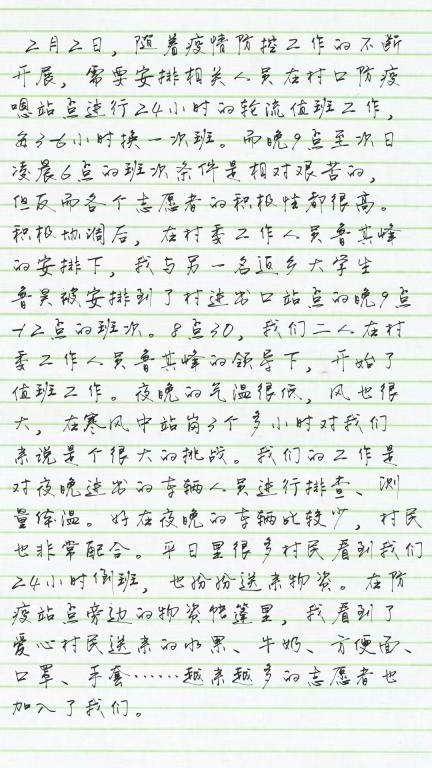 2月2日，随着疫情防控工作的不断
开展，需要安排相关人员在村口防疫
嗯站点进行24小时的轮流值班工作，
每3-6小时换一次班。而晚9点至次日
凌晨6点的班次条件是相对艰苦的，
但反而各个志愿者的积极性都很高。
积极协调后，在村委工作人员鲁其峰
的安排下，我与另一名返乡大学生
鲁昊被安排到了村进出口站点的晚9点
-12点的班次。8点30，我们二人在村
委工作人员鲁其峰的领导下，开始了
值班工作。夜晚的气温很低，风也很
大，在寒风中站岗3个多小时对我们
来说是个很大的挑战。我们的工作是
对夜晚进出的车辆人员进行排查、测
量体温。好在夜晚的车辆比较少，村民
也非常配合。平日里很多村民看到我们
24小时倒班，也纷纷送来物资。在防
疫站点旁边的物资帐篷里，我看到了
爱心村民送来的水果、牛奶、方便面、
口罩、手套……越来越多的志愿者也
加入了我们。